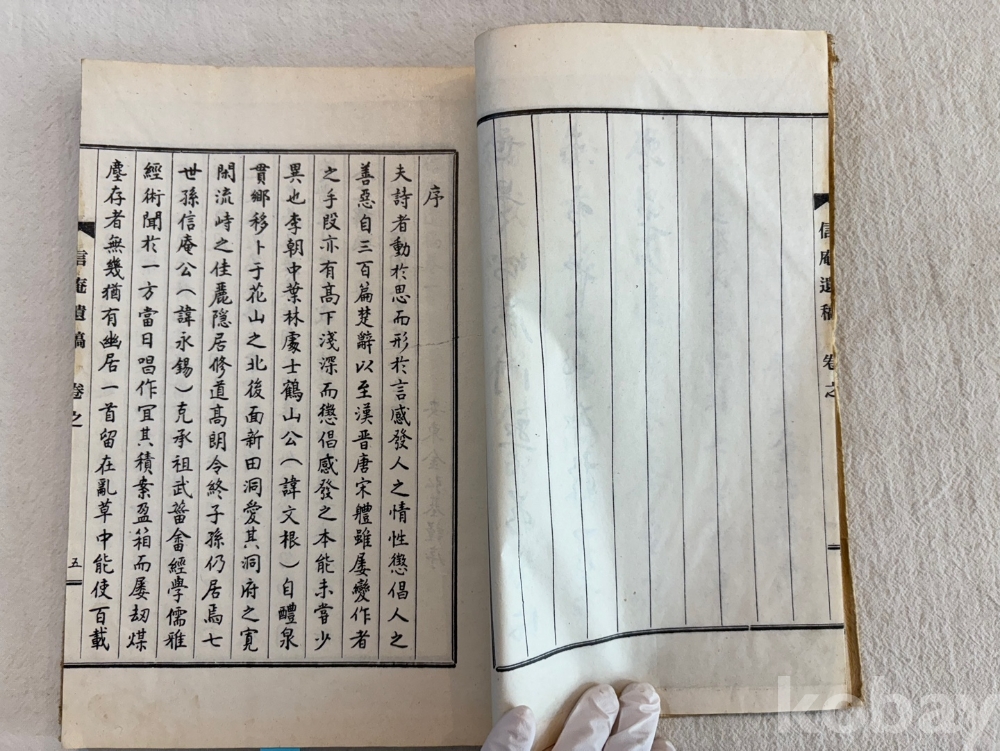 信庵遺稿 卷之
序
夫詩者動於思而形於言感發人之情性懲倡人之
善惡自三百篇楚辭以至漢晉唐宋體雖屢變作者
之手段亦有高下淺深而懲倡感發之本能未嘗少
異也李朝中葉林處士鶴山公(諱文根)自醴泉
貫鄉移卜于花山之北後面新田洞愛其洞府之寬
閑流峙之佳麗隱居修道高朗令終子孫仍居焉七
世孫信庵公(諱永錫)克承祖武菑畬經學儒雅
經術聞於一方當日唱作宜其積案盈箱而屢劫煤
塵存者無幾猶有幽居一首留在亂草中能使百載
信庵遺稿 卷之 五
kobay